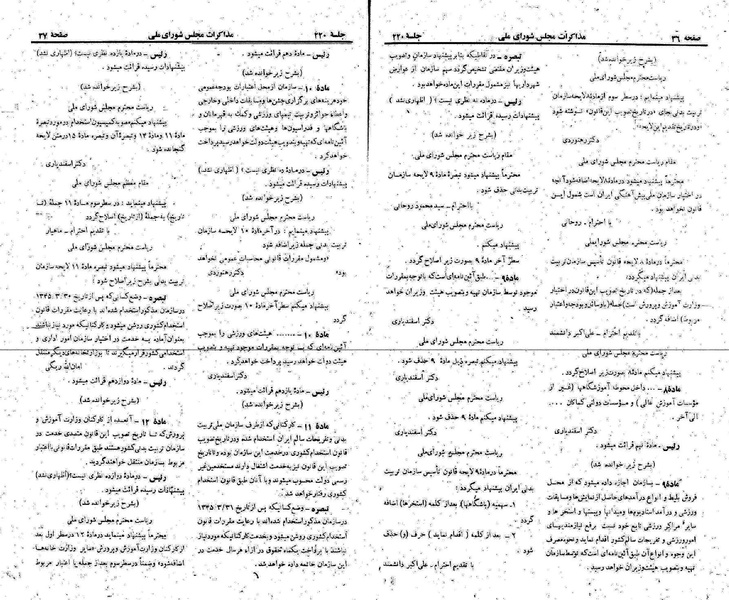 صفحه ۳۶ مذاکرات مجلس شورای ملی جلسه ۲۲۰
(بشرح زیر خوانده شد)
ریاست محترم مجلس شورای ملی
پیشنهاد مینمایم : در سطر سوم ماده ۷ لایحه سازمان
تربیت بدنی بجای «در تاریخ تصویب این قانون» نوشته شود
«در تاریخ تقدیم این لایحه»
دکتر رهنوردی
مقام ریاست محترم مجلس شورای ملی
محترماً پیشنهاد میشود در ماده ۸ لایحه اضافه شود آنچه
در اختیار سازمان ملی پیش‌آهنگی ایران است شمول این
قانون نخواهد بود.
با احترام ـ روحانی
ریاست محترم مجلس شورای ملی
محترماً در ماده ۸ لایحه قانون تأسیس سازمان تربیت
بدنی ایران پیشنهاد میگردد:
بعد از جمله (که در تاریخ تصویب این قانون در اختیار
وزارت آموزش و پرورش است) جمله (با وسائل و بودجه و اعتبار
مربوط) اضافه گردد.
با تقدیم احترام ـ علی‌اکبر دانشمند
ریاست محترم مجلس شورای ملی
پیشنهاد میکنم ماده ۸ بصورت زیر اصلاح گردد.
ماده ۸ ـ ... داخل محوطه آموزشگاهها (غیر از
مؤسسات آموزش عالی) و مؤسسات دولتی کماکان ...
الی آخر.
دکتر اسفندیاری
رئیس ـ ماده نهم قرائت میشود.
(بشرح زیر خوانده شد)
ماده ۹ ـ بسازمان اجازه داده میشود که از محل
فروش بلیط و انواع درآمدهای حاصل از نمایش‌ها و مسابقات
ورزشی و درآمد استادیوم‌ها و میدانها و پیستها و استخرها و
سایر مراکز ورزشی تابع خود نسبت برفع نیازمندیهای
امور ورزشی و تفریحات سالم کشور اقدام نماید و نحوه مصرف
این وجوه و انواع آن طبق آئین‌نامه‌ای است که توسط سازمان
تهیه و بتصویب هیئت وزیران خواهد رسید.
تبصره ـ در نقاطی که بنا بر پیشنهاد سازمان و تصویب
هیئت وزیران مقتضی تشخیص گردد سهم سازمان از عوارض
شهرداریها نیز مشمول مقررات این ماده خواهد بود.
رئیس ـ در ماده ۹ نظری نیست؟ (اظهاری نشد)
پیشنهادات رسیده قرائت میشود.
(بشرح زیر خوانده شد)
مقام ریاست محترم مجلس شورای ملی
محترماً پیشنهاد میشود تبصره ماده ۹ لایحه سازمان
تربیت بدنی حذف شود.
با احترام ـ سید محمود روحانی
ریاست محترم مجلس شورای ملی
پیشنهاد میکنم
سطر آخر ماده ۹ بصورت زیر اصلاح گردد.
ماده ۹ ـ طبق آئین‌نامه‌ای است که با توجه بمقررات
موجود توسط سازمان تهیه و بتصویب هیئت وزیران خواهد
رسید
دکتر اسفندیاری
ریاست محترم مجلس شورای ملی
پیشنهاد میکنم تبصره ذیل ماده ۹ حذف شود.
دکتر اسفندیاری
ریاست محترم مجلس شورای ملی
پیشنهاد میکنم ماده ۹ حذف شود.
دکتر اسفندیاری
ریاست محترم مجلس شورای ملی
محترماً در ماده ۹ لایحه قانون تأسیس سازمان تربیت
بدنی ایران پیشنهاد میگردد:
۱ ـ سهمیه (باشگاهها) بعد از کلمه (استخرها) اضافه
گردد
۲ ـ بعد از کلمه (اقدام نماید) حرف (و) حذف
شود
با تقدیم احترام ـ علی‌اکبر دانشمند
جلسه ۲۲۰ مذاکرات مجلس شورای ملی صفحه ۳۷
رئیس ـ ماده دهم قرائت میشود.
(بشرح زیر خوانده شد)
ماده ۱۰ ـ سازمان از محل اعتبارات بودجه عمومی
خود هزینه‌های برگزاری جشن‌ها و مسابقات داخلی و خارجی
و اعطاء جوائز و تربیت تیمهای ورزشی و کمک به قهرمانان و
باشگاهها و فدراسیون‌ها و هیئت‌های ورزشی را بموجب
آئین‌نامه‌ای که تهیه و بتصویب هیئت وزیران خواهد رسید پرداخت
خواهد کرد.
رئیس ـ در ماده ۱۰ نظری نیست؟ (اظهاری نشد)
پیشنهادات رسیده قرائت میشود.
(بشرح زیر خوانده شد)
ریاست محترم مجلس شورای ملی
پیشنهاد مینمایم: در آخر ماده ۱۰ لایحه سازمان
تربیت بدنی جمله زیر اضافه شود
«و مشمول مقررات قانون محاسبات عمومی نخواهد
بود» دکتر رهنوردی
ریاست محترم مجلس شورای ملی
پیشنهاد میکنم سطر آخر ماده ۱۰ بصورت زیر اصلاح
گردد
ماده ۱۰ ـ ........ هیئت‌های ورزشی را بموجب
آئین‌نامه‌ای که با توجه بمقررات موجود تهیه و بتصویب
هیئت دولت خواهد رسید پرداخت خواهد کرد.
دکتر اسفندیاری
رئیس ـ ماده یازدهم قرائت میشود.
(بشرح زیر خوانده شد)
ماده ۱۱ ـ کارکنانی که از طرف سازمان ملی تربیت
بدنی و تفریحات سالم ایران استخدام شده و در تاریخ تصویب
قانون استخدام کشوری در خدمت این سازمان بوده و تا تاریخ
تصویب این قانون نیز بخدمت اشتغال دارند مستخدمین غیر
رسمی دولت محسوب میشوند و با آنان طبق قانون استخدام
کشوری رفتار خواهد شد.
تبصره ـ وضع کسانیکه پس از تاریخ ۱۳۴۵/۳/۳۱
در سازمان مذکور استخدام شده‌اند با رعایت مقررات قانون
استخدام کشوری روشن میشود و بخدمت کارکنانیکه مورد نیاز
نباشند با پرداخت یکماه حقوق در ازاء هر سال خدمت در
این سازمان خاتمه داده خواهد شد.
رئیس ـ در ماده یازده نظری نیست؟ (اظهاری نشد)
پیشنهادات رسیده قرائت میشود.
(بشرح زیر خوانده شد)
ریاست محترم مجلس شورای ملی
پیشنهاد میکنم مصوبه کمیسیون استخدام در مورد تبصره
ماده ۱۱ و ماده ۱۳ و تبصره آن و تبصره ماده ۱۵ در متن لایحه
گنجانده شود.
دکتر اسفندیاری
مقام معظم مجلس شورای ملی
پیشنهاد مینماید : در سطر سوم ماده ۱۱ جمله (تا
تاریخ) به جمله (از تاریخ) اصلاح گردد
با تقدیم احترام ـ ماهیار
ریاست محترم مجلس شورای ملی
محترماً پیشنهاد میشود تبصره ماده ۱۱ لایحه سازمان
تربیت بدنی بشرح زیر اصلاح شود
تبصره ـ وضع کسانی که پس از تاریخ ۱۳۴۵/۳/۳۰
در سازمان مذکور استخدام شده‌اند با رعایت مقررات قانون
استخدام کشوری روشن میشود و کارکنانیکه مورد نیاز نباشند
بعنوان آماده به خدمت در اختیار سازمان امور اداری و
استخدامی کشور قرار میگیرند تا بوزارتخانه‌های دیگر منتقل
گردند امان‌الله ریگی
رئیس ـ ماده دوازدهم قرائت میشود.
(بشرح زیر خوانده شد)
ماده ۱۲ ـ آنعده از کارکنان وزارت آموزش و
پرورش که تا تاریخ تصویب این قانون متصدی خدمت در
تربیت بدنی کشور هستند طبق مقررات قانونی با اعتبار
مربوط بسازمان منتقل خواهند گردید.
رئیس ـ در ماده دوازدهم نظری نیست؟ (اظهاری نشد)
پیشنهادات رسیده قرائت میشود.
(بشرح زیر خوانده شد)
ریاست محترم مجلس شورای ملی
محترماً پیشنهاد مینماید در ماده ۱۲ در سطر اول بعد
از کارکنان وزارت آموزش و پرورش «و سایر وزارت خانه‌ها»
اضافه شود و ضمناً در سطر سوم بعد از جمله با اعتبار مربوط